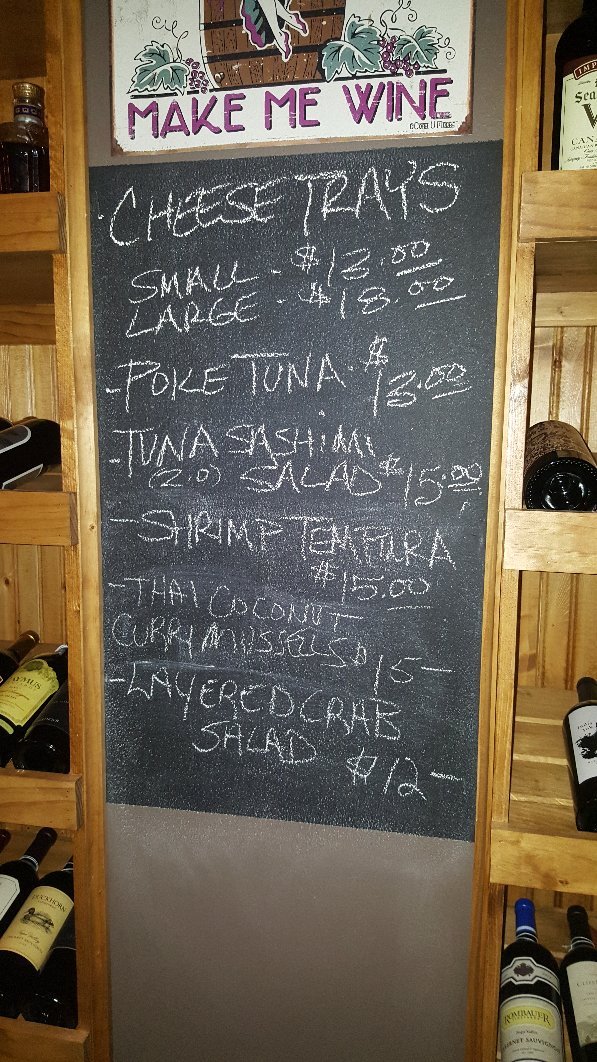 MAKE ME WINE
CHEESE TRAYS
SMALL - $12.00
LARGE - $18.00
- POKE TUNA - $13.00
- TUNA SASHIMI
(2.0) SALAD $15.00
- SHRIMP TEMPURA
$15.00
- THAI COCONUT
CURRY MUSSELS $15 -
- LAYERED CRAB
SALAD
$12 -
DUCKHORN
ROMBAUER
CABERNET SAUVIGNON